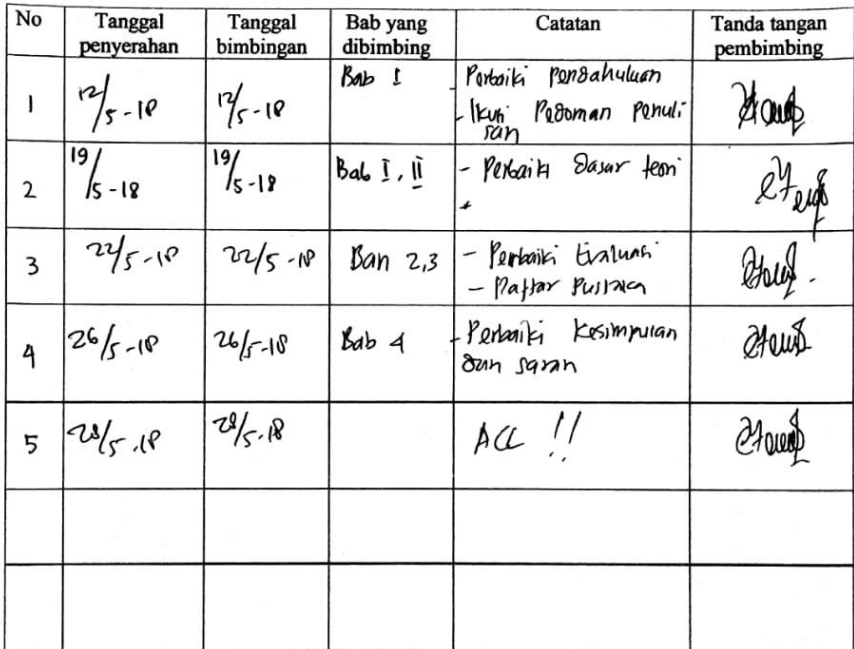 No Tanggal penyerahan Tanggal bimbingan Bab yang dibimbing Catatan Tanda tangan pembimbing
1 12/5-18 12/5-18 Bab I - Perbaiki pendahuluan
- Ikuti Pedoman Penuli
san
2 19/5-18 19/5-18 Bab I, II - Perbaiki Dasar teori
3 22/5-18 22/5-18 Ban 2,3 - Perbaiki Evaluasi
- Daftar Pustaka
4 26/5-18 26/5-18 Bab 4 - Perbaiki Kesimpulan
dan saran
5 28/5-18 28/5-18 ACC !!